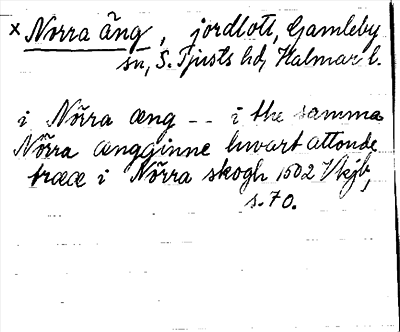 × Norra äng, jordlott, Gamleby
sn, S. Tjusts hd, Kalmar l.
i Nörra æng -- i the samma
Nörra ængginne hwart attonde
trææ i Nörra skogh 1502 Vkjb,
s. 70.